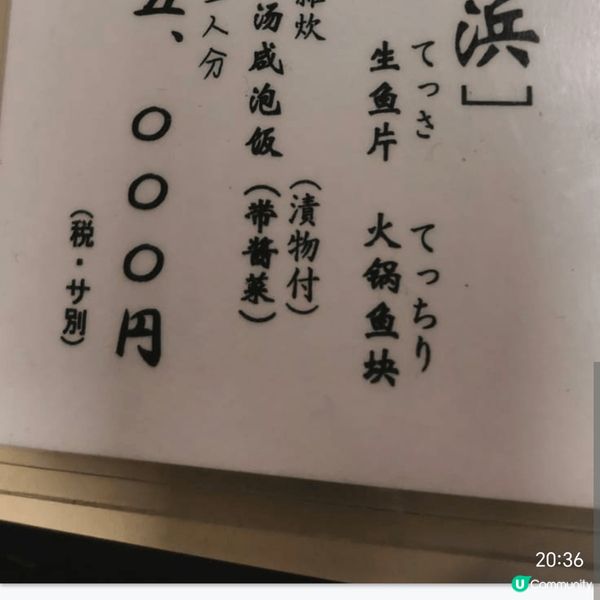 浜］
てっさ てっちり
生鱼片 火锅鱼块
雑炊（漬物付）
汤咸泡饭（帯醤菜）
人分
五、〇〇〇円
（税・サ別）
20:36
U Community